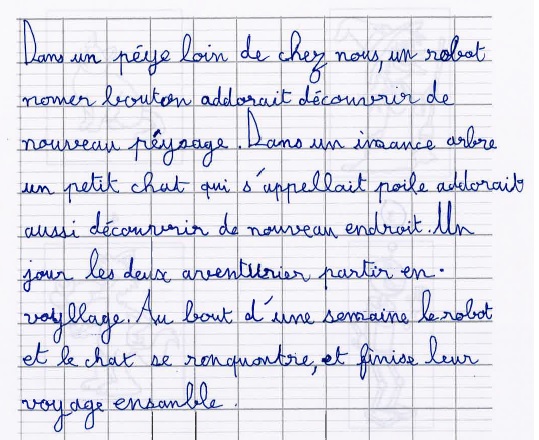 Dans un péye loin de chez nous, un robot
nomer bouton addorait découvrir de
nouveau péysage. Dans un imance arbre
un petit chat qui s'appellait poile addorait
aussi découvrir de nouveau endroit. Un
jour les deux arventurier partir en.
voyllage. Au bout d'une semaine le robot
et le chat se ronquontre, et finise leur
voyage ensanble.